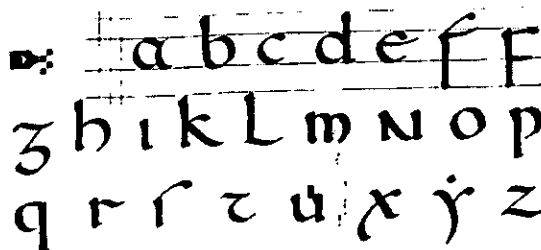 a b c d e f F
g h ı k L m N o p
q r ſ t u x ẏ z